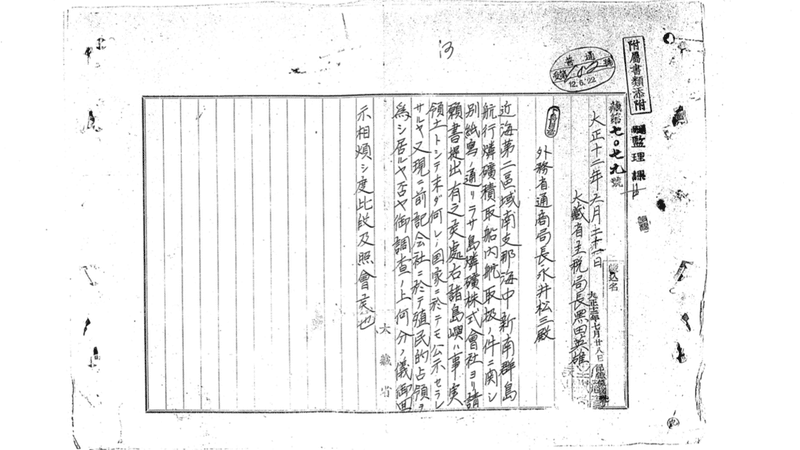 附屬書類添附
普通
12.6.22
監理課
藏第七〇七九號
大正十二年六月二十一日
大藏省主税局長黒田英雄
外務省通商局長永井松三殿
近海第二區域南支那海中新南群島
航行燐礦積取船內航取扱ノ件ニ関シ
別紙寫ノ通リラサ島燐礦株式會社ヨリ請
願書提出有之候處右諸島嶼ハ事実
領土トシテ未ダ何レノ国家ニ於テモ公示セラレ
サルヤ又現ニ前記会社ニ於テ殖民的占領ヲ
為シ居ルヤ否ヤ御調査ノ上何分ノ儀御回
示相煩シ度此段及照會候也
大藏省